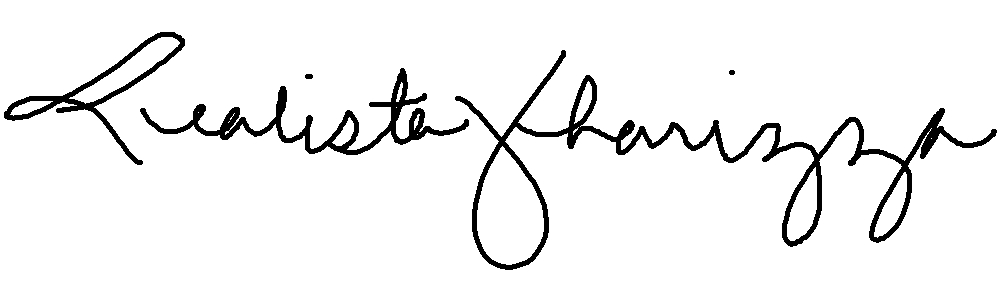 Realista Yharizza